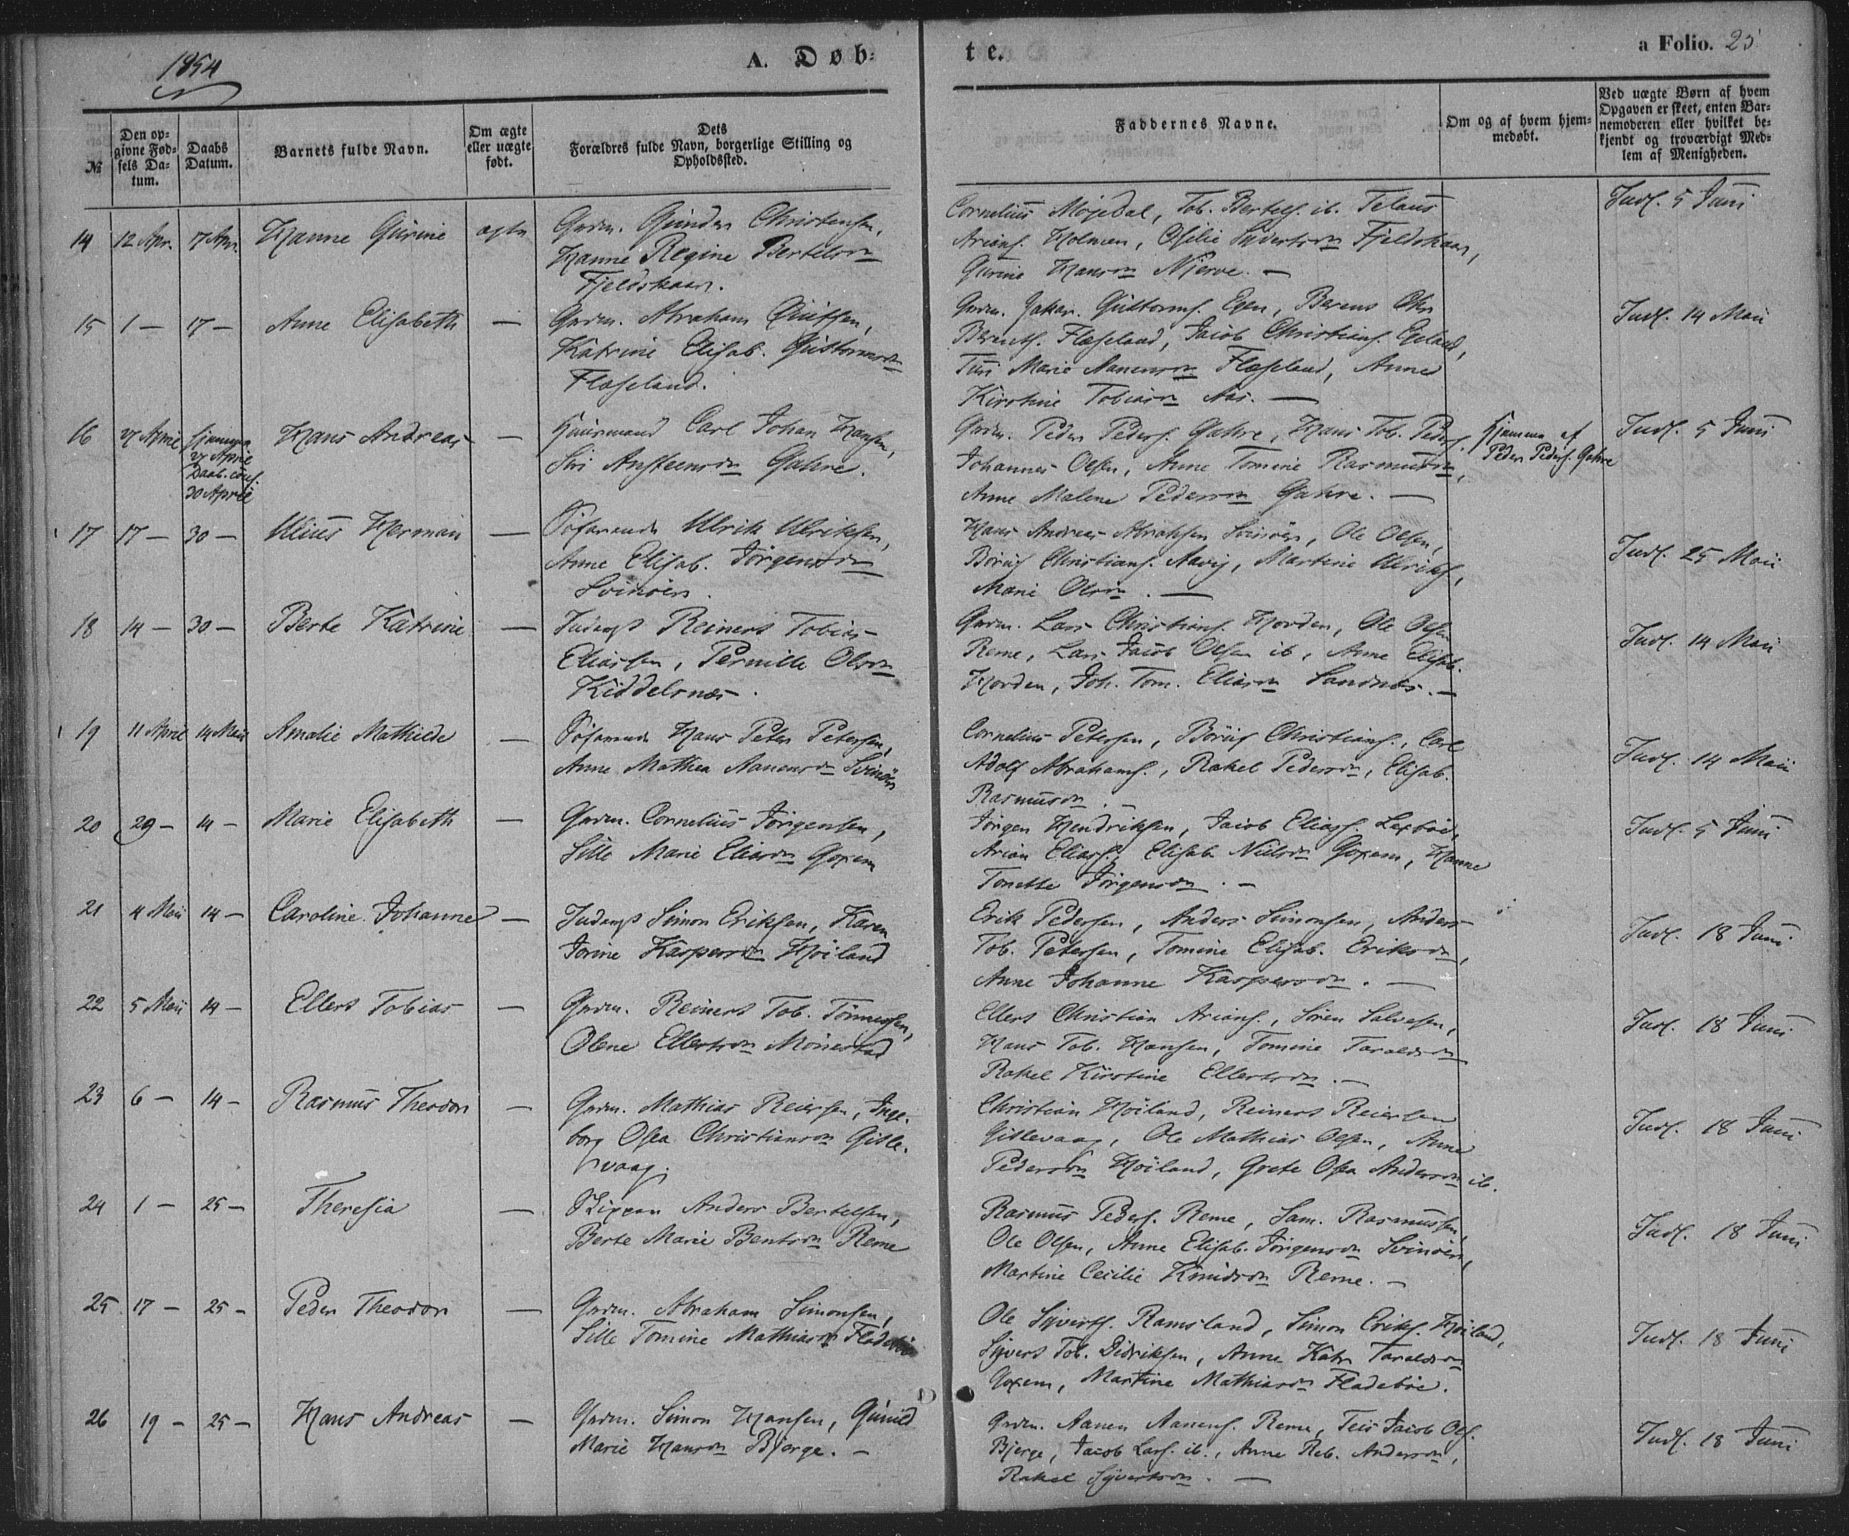 1854
A. Døb-
te.
a Folio. 25
№
Den op-
givne Fød-
sels Da-
tum.
Daabs
Datum.
Barnets fulde Navn.
Om ægte
eller uægte
født.
Dets
Forældres fulde Navn, borgerlige Stilling og
Opholdssted.
Faddernes Navne.
Om og af hvem hjem-
medøbt.
Ved uægte Børn af hvem
Opgaven er skeet, enten Bar-
nemoderen eller hvilket be-
kjendt og troværdigt Med-
lem af Menigheden.
14 12 Apr. 17 Apr. Hanne Gurine ægte
Grdm. Gunder Christensen,
Hanne Regine Bertelsdn
Fjeldskaar.
Cornelius Møgedal, Tob. Bertels. ib.
Arians. Holmen, Fjeldskaar,
Gurine Hansdn Njerve. —
Indf. 5 Juni
15 1 — 17 — Anne Elisabeth —
Grdm. Abraham
Katrine Elisab. Guttormsdn
Flæseland.
Grdm. Zakar. Guttorms. Egen, Berent
Berents. Flæseland, Jacob Christians. Egeland,
Marie Aanensdn Flæseland, Anne
Kirstine Tobiasdn Aas. —
Indf. 14 Maii
16 27 April hjemme
27 April
Daab. conf.
30 April
Hans Andreas —
Huusmand Carl Johan Hansen,
Siri Ansteensdn Gahre.
Grdm. Peder Peders. Gahre, Hans Tob. Peders.
Johannes Olsen, Anne Tomine Rasmusdn,
Anne Malene Pedersdn Gahre. —
Hjemme af
Peder Peders. Gahre
Indf. 5 Juni
17 17 — 30 — Ulius Herman —
Søfarende Ulrik Ulriksen,
Anne Elisab. Jørgensdn
Svinøer.
Hans Andreas Abrahsen Svinøer, Ole Olsen,
Børuf Christians. Aavig, Martine Ulriks,
Marie Olsdn. —
Indf. 25 Maii
18 14 — 30 — Berte Katrine —
Inderst Reinert Tobias
Eliassen, Pernille Olsdn
Kiddelsnæs.
Grdm. Lars Christians. Horden, Ole Olsen
Reme, Lars Jacob Olsen ib, Anne Elisab.
Horden, Joh. Tom. Eliasdn Sandnæs. —
Indf. 14 Maii
19 11 April 14 Maii Amalie Mathilde —
Søfarende Hans Peter Petersen,
Anne Mathea Aanensdn Svinøer
Cornelius Petersen, Børuf Christians., Carl
Adolf Abrahams., Rakel Pedersdn, Elisab.
Rasmusdn. —
Indf. 14 Maii
20 29 — 14 — Marie Elisabeth —
Grdm. Cornelius Jørgensen,
Sille Marie Eliasdn Goxem
Jørgen Hendriksen, Jacob Eliass.
Arian Eliass. Elisab. Nielsdn Goxem, Hanne
Tonette Jørgensdn. —
Indf. 5 Juni
21 4 Maii 14 — Caroline Johanne —
Inderst Simon Eriksen, Karen
Jorine Kaspersdn Høiland
Erik Pedersen, Anders Simonsen, Anders
Tob. Petersen, Tomine Elisab. Eriksdn,
Anne Johanne Kaspersdn. —
Indf. 18 Juni
22 5 Maii 14 — Ellert Tobias —
Grdm. Reinert Tob. Tønnessen,
Olene Ellertsdn Mønestad
Ellert Christian Arians., Søren Salvesen,
Hans Tob. Hansen, Tomine Taraldsdn
Rakel Kirstine Ellertsdn. —
Indf. 18 Juni
23 6 — 14 — Rasmus Theodor —
Grdm. Mathias Reiersen, Inge-
borg Osea Christiansdn Gitle-
vaag.
Christian Høiland, Reinert Reiersen
Gitlevaag, Ole Mathias Olsen, Anne
Pedersdn Høiland, Grete Osea Andersdn ib.
Indf. 18 Juni
24 1 — 25 — Theresia —
Skipper Anders Bertelsen,
Berte Marie Bentsdn Reme
Rasmus Peders. Reme, Sam. Rasmussen,
Ole Olsen, Anne Elisab. Jørgensdn Svinøer,
Martine Cecilie Knudsdn Reme. —
Indf. 18 Juni
25 17 — 25 — Peder Theodor —
Grdm. Abraham Simonsen,
Sille Tomine Mathiasdn Fladebøe
Ole Syverts. Ramsland, Simon Eriks. Høiland,
Syvert Tob. Didriksen, Anne Katr. Taraldsdn
Goxem, Martine Mathiasdn Fladebøe.
Indf. 18 Juni
26 19 — 25 — Hans Andreas —
Grdm. Simon Hansen, Gunild
Marie Hansdn Bjerge. —
Grdm. Aanen Aanens. Reme, Teis Jacob Ols.
Bjerge, Jacob Lars. ib., Anne Reb. Andersdn,
Rakel Syvertsdn. —
Indf. 18 Juni